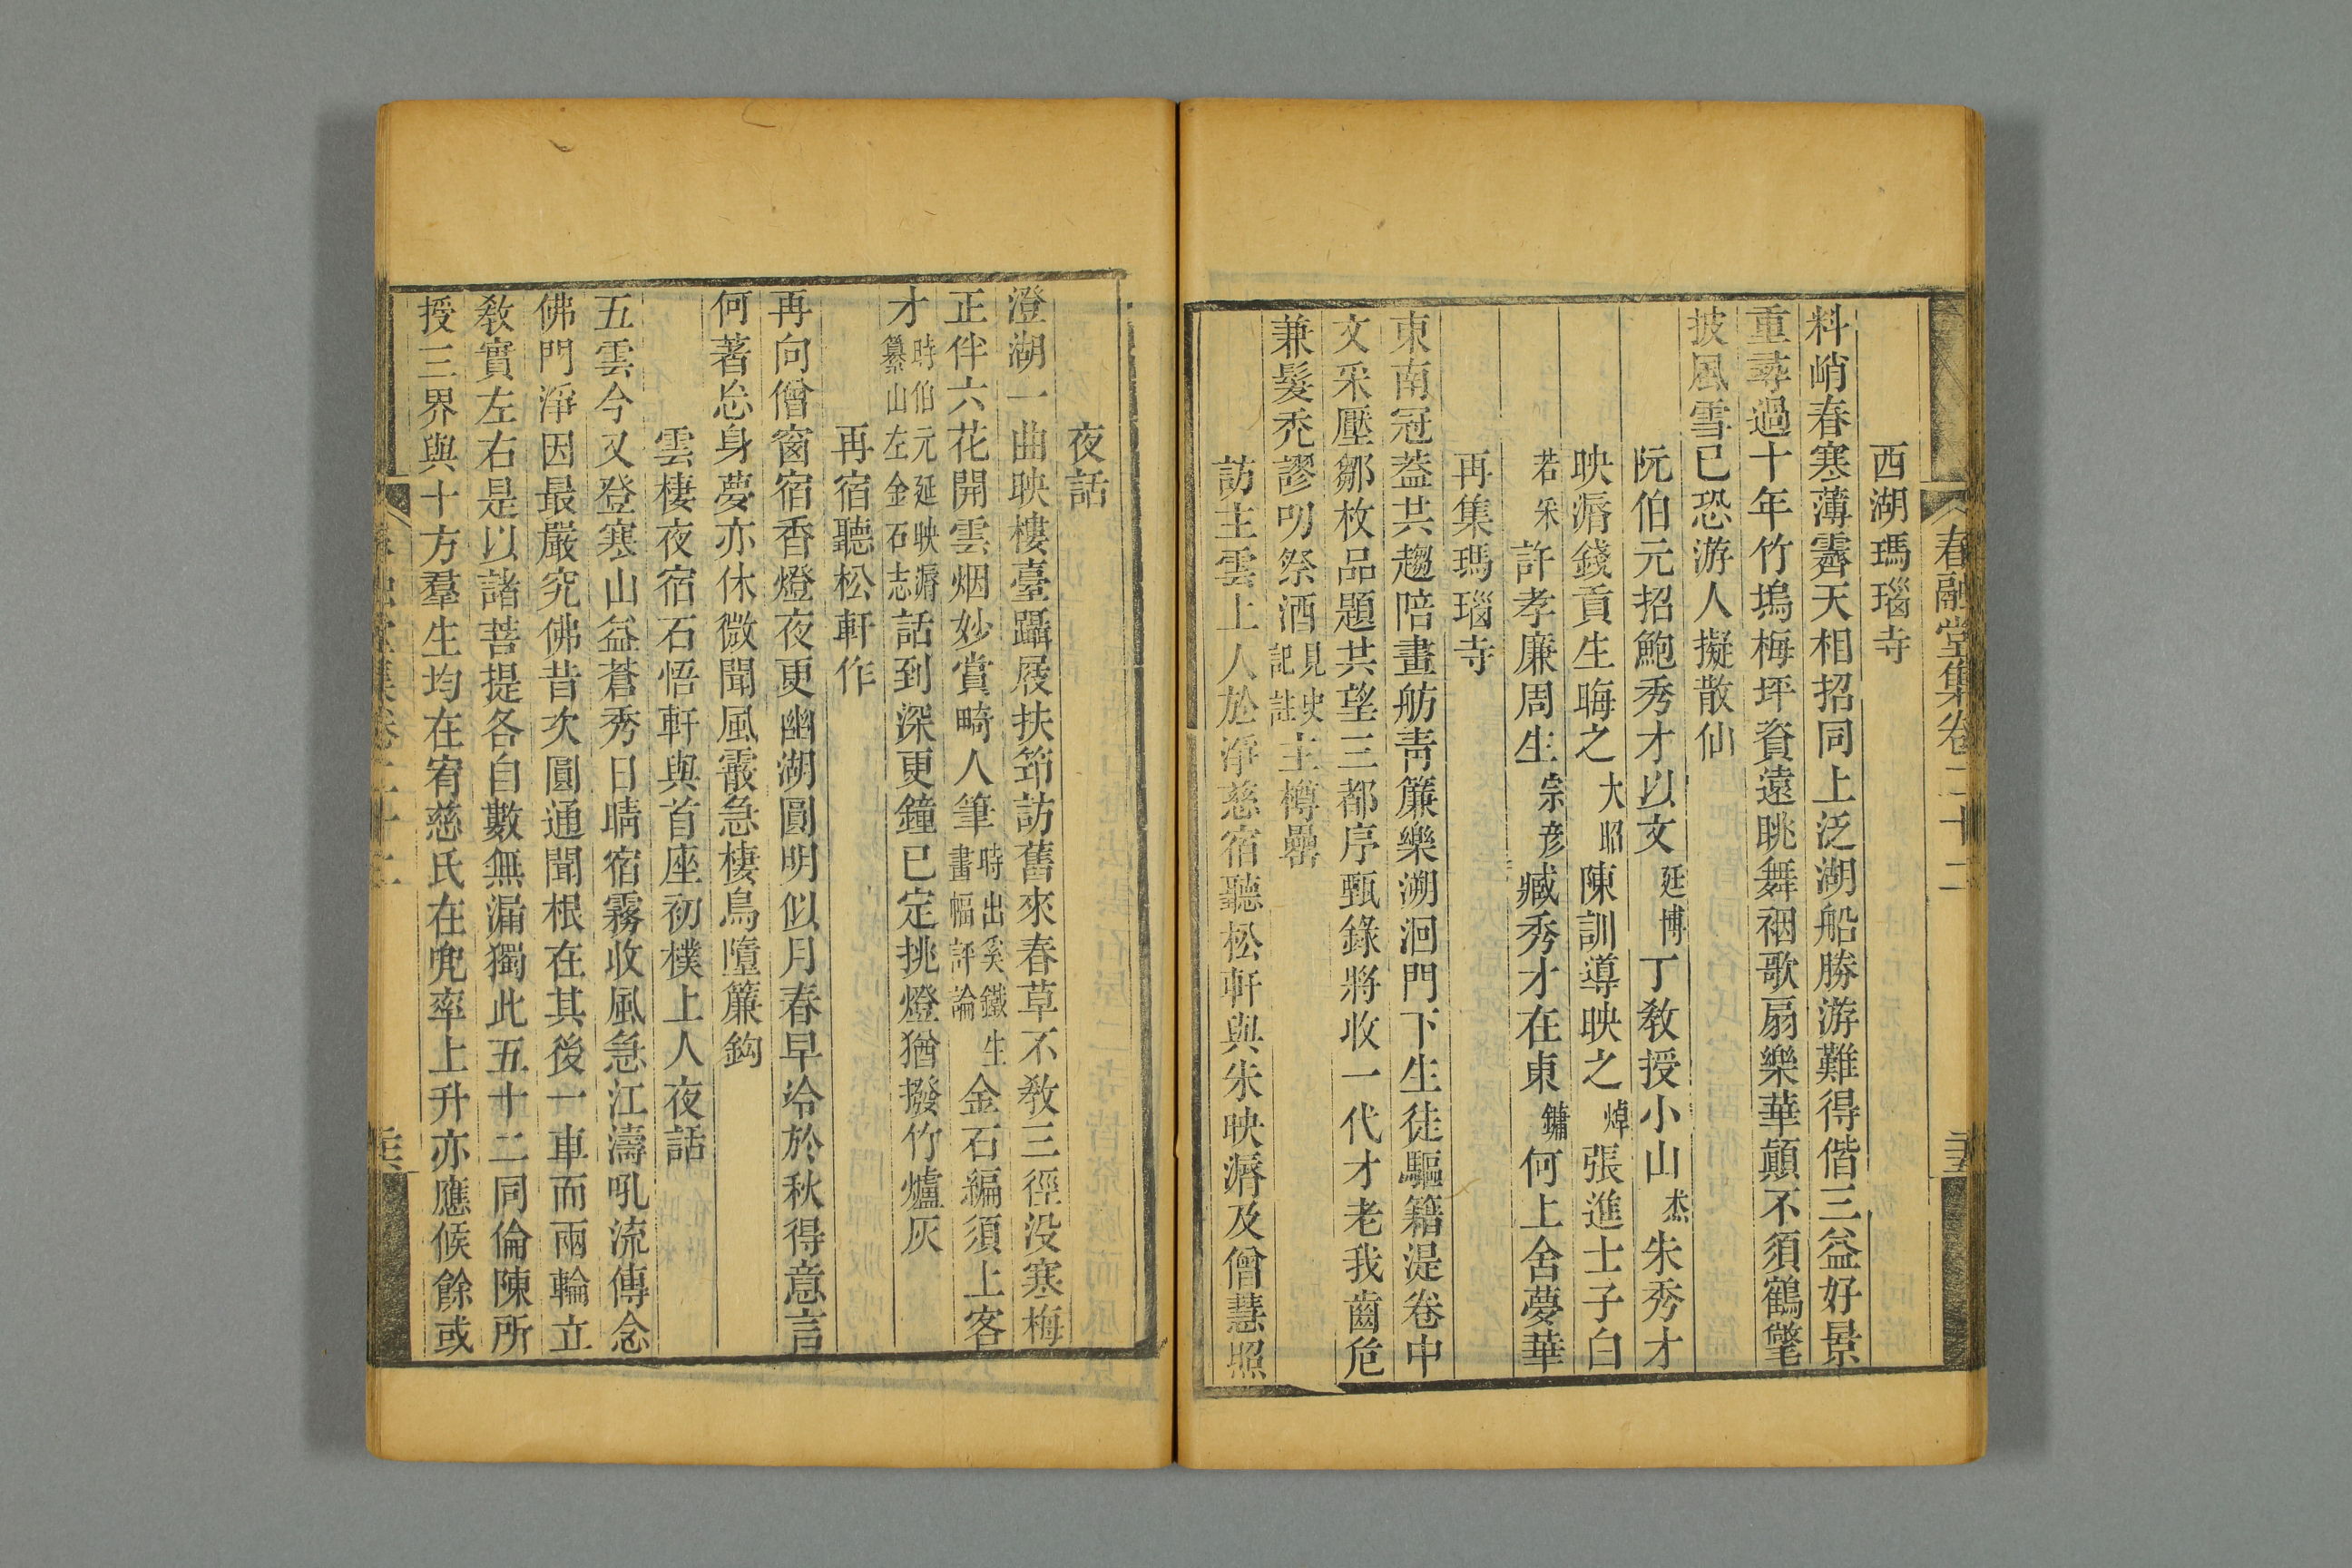 春融堂集卷二十二
西湖瑪瑙寺
料峭春寒薄霽天相招同上泛湖船勝游難得偕三益好景
重尋過十年竹塢梅坪資遠眺舞裀歌扇樂華顛不須鶴氅
披風雪已恐游人擬散仙
阮伯元招鮑秀才以文廷博丁教授小山杰朱秀才
映漘錢貢生晦之大昭陳訓導映之焯張進士子白
若采許孝廉周生宗彥臧秀才在東鏞何上舍夢華
再集瑪瑙寺
東南冠葢共趨陪畫舫靑簾樂溯洄門下生徒驅籍湜卷中
文采壓鄒枚品題共望三都序甄錄將收一代才老我齒危
兼髮禿謬叨祭酒見史記註主樽罍
訪主雲上人於淨慈宿聽松軒與朱映漘及僧慧照
夜話
澄湖一曲映樓臺躡屐扶筇訪舊來春草不教三徑没寒梅
正伴六花開雲烟妙賞畸人筆時出奚鐵生畫幅評論金石編須上客
才時伯元延映漘纂山左金石志話到深更鐘已定挑燈猶撥竹爐灰
再宿聽松軒作
再向僧窗宿香燈夜更幽湖圓明似月春早冷於秋得意言
何著忘身夢亦休微聞風霰急棲鳥墮簾鈎
雲棲夜宿石悟軒與首座初樸上人夜話
五雲今又登寒山益蒼秀日晴宿霧收風急江濤吼流傳念
佛門淨因最嚴究佛昔次圓通聞根在其後一車而兩輪立
敎實左右是以諸菩提各自數無漏獨此五十二同倫陳所
授三界與十方羣生均在宥慈氏在兜率上升亦應候餘或